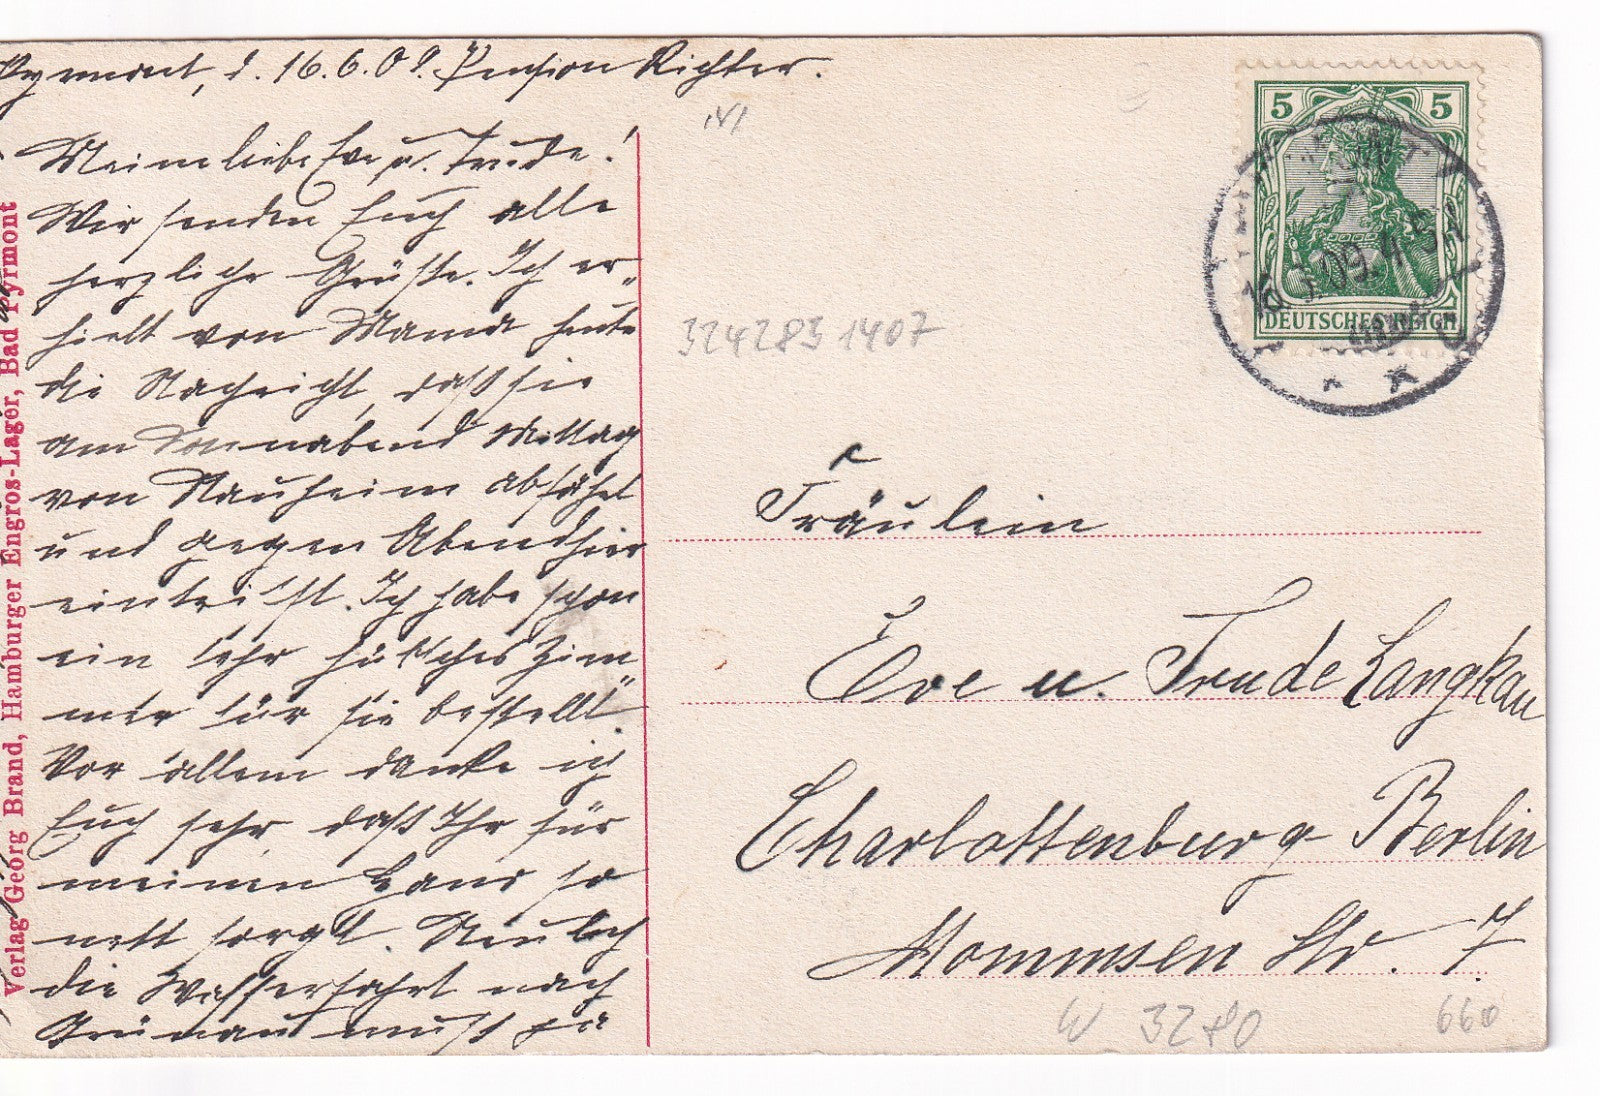 Pyrmont, d. 16.6.09. Pension Richter.
Meine liebe Eve u. Trude!
Wir senden Euch alle
herzliche Grüße. Ich er-
hielt von Mama heute
die Nachricht, daß sie
am Sonnabend Mittag
von Nauheim abfährt
und gegen Abend hier
eintrifft. Ich habe schon
ein sehr hübsches Zim-
mer für sie bestellt.
Vor allem danke ich
Euch sehr, daß Ihr für
meinen Hans so
nett sorgt. Neulich
die Wasserfahrt nach
Grünau muß ja
Verlag Georg Brand, Hamburger Engros-Lager, Bad Pyrmont
5 5
DEUTSCHES REICH
3242831407
Fräulein
Eve u. Trude Langkau
Charlottenburg Berlin
Mommsen Str. 7.
W 3280
660